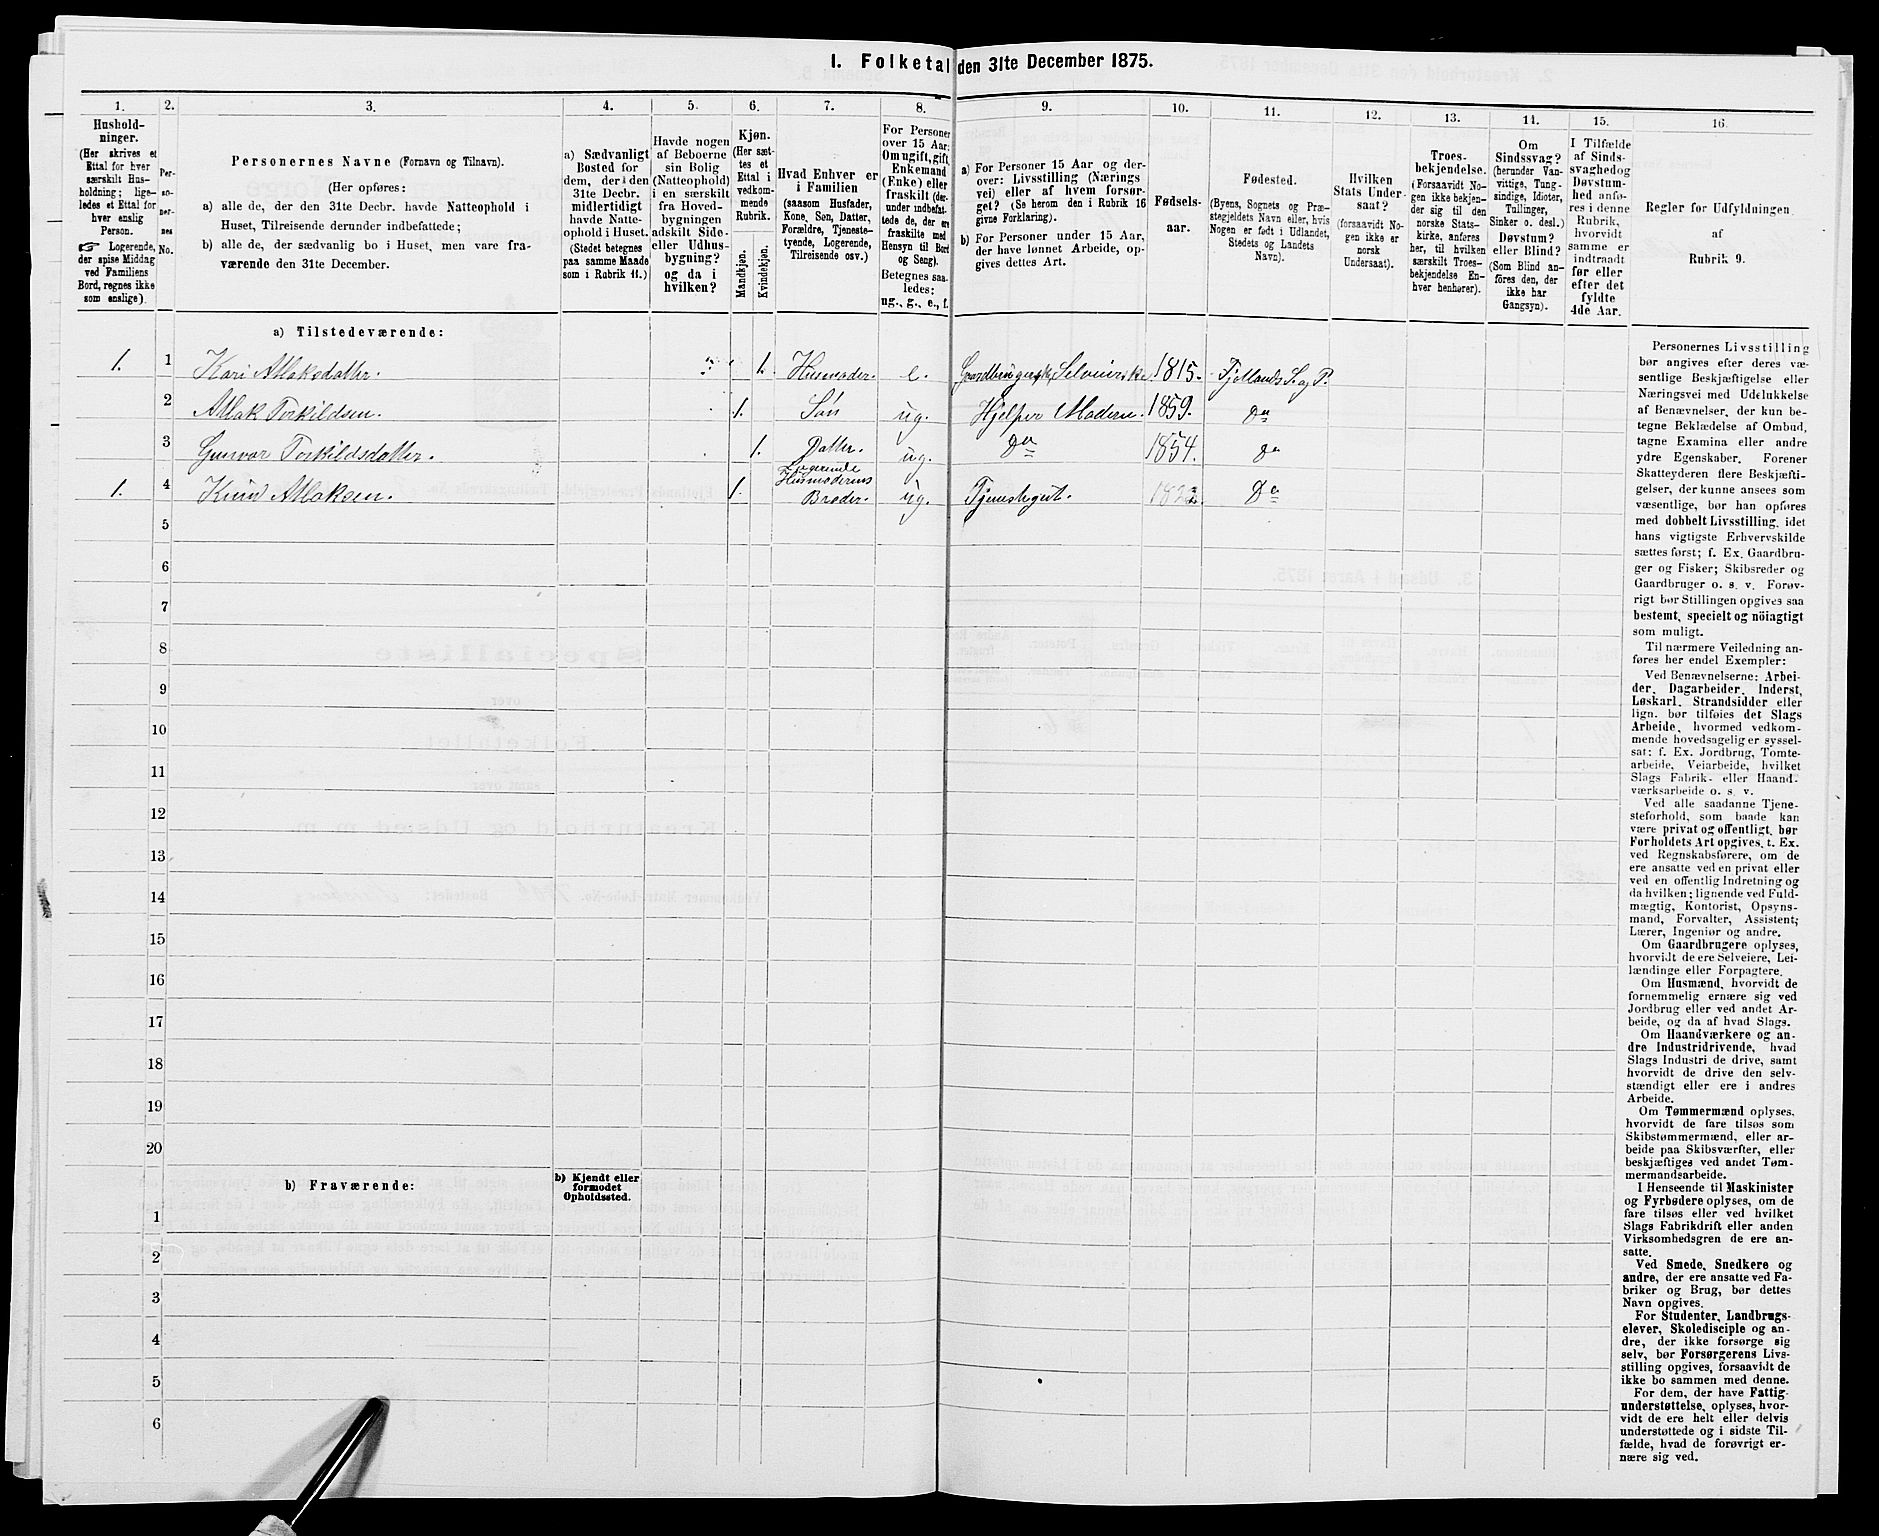 I. Folketal den 31te December 1875.
1. 2. 3. 4. 5. 6. 7. 8. 9. 10. 11. 12. 13. 14. 15. 16.
Hushold-
ninger.
(Her skrives et
Ettal for hver
særskilt Hus-
holdning; lige-
ledes et Ettal for
hver enslig
Person.
☞ Logerende,
der spise Middag
ved Familiens
Bord, regnes ikke
som enslige).
Per-
so-
ner-
nes
No.
Personernes Navne (Fornavn og Tilnavn).
(Her opføres:
a) alle de, der den 31te Decbr. havde Natteophold i
Huset, Tilreisende derunder indbefattede;
b) alle de, der sædvanlig bo i Huset, men vare fra-
værende den 31te December.
a) Sædvanligt
Bosted for
dem, der i den
31te Decbr.
midlertidigt
havde Natte-
ophold i Huset.
(Stedet betegnes
paa samme Maade
som i Rubrik 11.)
Havde nogen
af Beboerne
sin Bolig
(Natteophold)
i en særskilt
fra Hoved-
bygningen
adskilt Side-
eller Udhus-
bygning?
og da i
hvilken?
Kjøn.
(Her sæt-
tes et
Ettal i
vedkom-
mende
Rubrik.
Mandkjøn.
Kvindekjøn.
Hvad Enhver er
i Familien
(saasom Husfader,
Kone, Søn, Datter,
Forældre, Tjeneste-
tyende, Logerende,
Tilreisende osv.)
For Personer
over 15 Aar:
Om ugift, gift,
Enkemand
(Enke) eller
fraskilt (der-
under indbefat-
tede de, der ere
fraskilte med
Hensyn til Bord
og Seng).
Betegnes saa-
ledes:
ug., g., e., f.
a) For Personer 15 Aar og der-
over: Livsstilling (Nærings-
vei) eller af hvem forsør-
get? (Se herom den i Rubrik 16
givne Forklaring).
b) For Personer under 15 Aar,
der have lønnet Arbeide, op-
gives dettes Art.
Fødsels-
aar.
Fødested.
(Byens, Sognets og Præ-
stegjeldets Navn eller, hvis
Nogen er født i Udlandet,
Stedets og Landets
Navn).
Hvilken
Stats Under-
saat?
(forsaavidt No-
gen ikke er
norsk
Undersaat).
Troes-
bekjendelse.
(Forsaavidt No-
gen ikke bekjen-
der sig til den
norske Stats-
kirke, anføres
her, til hvilken
særskilt Troes-
bekjendelse En-
hver henhører).
Om
Sindssvag?
(herunder Van-
vittige, Tung-
sindige, Idioter,
Tullinger,
Sinker o. desl.)
Døvstum?
eller Blind?
(Som Blind an-
føres den, der
ikke har
Gangsyn).
I Tilfælde
af Sinds-
svaghed og
Døvstum-
hed anfø-
res i denne
Rubrik,
hvorvidt
samme er
indtraadt
før eller
efter det
fyldte
4de Aar.
Regler for Udfyldningen
af
Rubrik 9.
a) Tilstedeværende:
1. 1 Kari Atlaksdatter. 1. Husmoder. e. Gaardbrugersk. Selveierske. 1815. Fjellands S. og P.
2 Atlak Torkildsen. 1. Søn ug. Hjelper Moderen. 1859. Do
3 Gunvor Torkildsdatter. 1. Datter. ug. Do 1854. Do
1. 4 Knud Atlaksen. 1. Logerende
Husmoderens
Broder. ug. Tjenstegut. Do
5
6
7
8
9
10
11
12
13
14
15
16
17
18
19
20
b) Fraværende:
b) Kjendt eller
formodet
Opholdssted.
1
2
3
4
5
6
Personernes Livsstilling
bør angives efter deres væ-
sentlige Beskjæftigelse eller
Næringsvei med Udelukkelse
af Benævnelser, der kun be-
tegne Beklædelse af Ombud,
tagne Examina eller andre
ydre Egenskaber. Forener
Skatteyderen flere Beskjæfti-
gelser, der kunne ansees som
væsentlige, bør han opføres
med dobbelt Livsstilling, idet
hans vigtigste Erhvervskilde
sættes først; f. Ex. Gaardbru-
ger og Fisker; Skibsreder og
Gaardbruger o. s. v. Forøv-
rigt bør Stillingen opgives saa
bestemt, specielt og nöiagtigt
som muligt.
Til nærmere Veiledning an-
føres her endel Exempler:
Ved Benævnelserne: Arbei-
der, Dagarbeider, Inderst,
Løskarl, Strandsidder eller
lign. bør tilføies det Slags
Arbeide, hvormed vedkom-
mende hovedsagelig er syssel-
sat; f. Ex. Jordbrug, Tomte-
arbeide, Veiarbeide, hvilket
Slags Fabrik- eller Haand-
værksarbeide o. s. v.
Ved alle saadanne Tjene-
steforhold, som baade kan
være privat og offentligt, bør
Forholdets Art opgives, t. Ex.
ved Regnskabsførere, om de
ere ansatte ved en privat eller
ved en offentlig Indretning og
da hvilken; lignende ved Fuld-
mægtig, Kontorist, Opsyns-
mand, Forvalter, Assistent;
Lærer, Ingeniør og andre.
Om Gaardbrugere oplyses,
hvorvidt de ere Selveiere, Lei-
lændinge eller Forpagtere.
Om Husmænd, hvorvidt de
fornemmelig ernære sig ved
Jordbrug eller ved andet Ar-
beide, og da af hvad Slags.
Om Haandværkere og an-
dre Industridrivende, hvad
Slags Industri de drive, samt
hvorvidt de drive den selv-
stændigt eller ere i andres
Arbeide.
Om Tømmermænd oplyses,
hvorvidt de fare tilsøs som
Skibstømmermænd, eller ar-
beide paa Skibsværfter, eller
beskjæftiges ved andet Tøm-
mermandsarbeide.
I Henseende til Maskinister
og Fyrbødere oplyses, om de
fare tilsøs eller ved hvilket
Slags Fabrikdrift eller anden
Virksomhedsgren de ere an-
satte.
Ved Smede, Snedkere og
andre, der ere ansatte ved Fa-
briker og Brug, bør dettes
Navn opgives.
For Studenter, Landbrugs-
elever, Skoledisciple og an-
dre, der ikke forsørge sig
selv, bør Forsørgerens Livs-
stilling opgives, forsaavidt de
ikke bo sammen med denne.
For dem, der have Fattig-
understøttelse, oplyses, hvor-
vidt de ere helt eller delvis
understøttede og i sidste Til-
fælde, hvad de forøvrigt er-
nære sig ved.